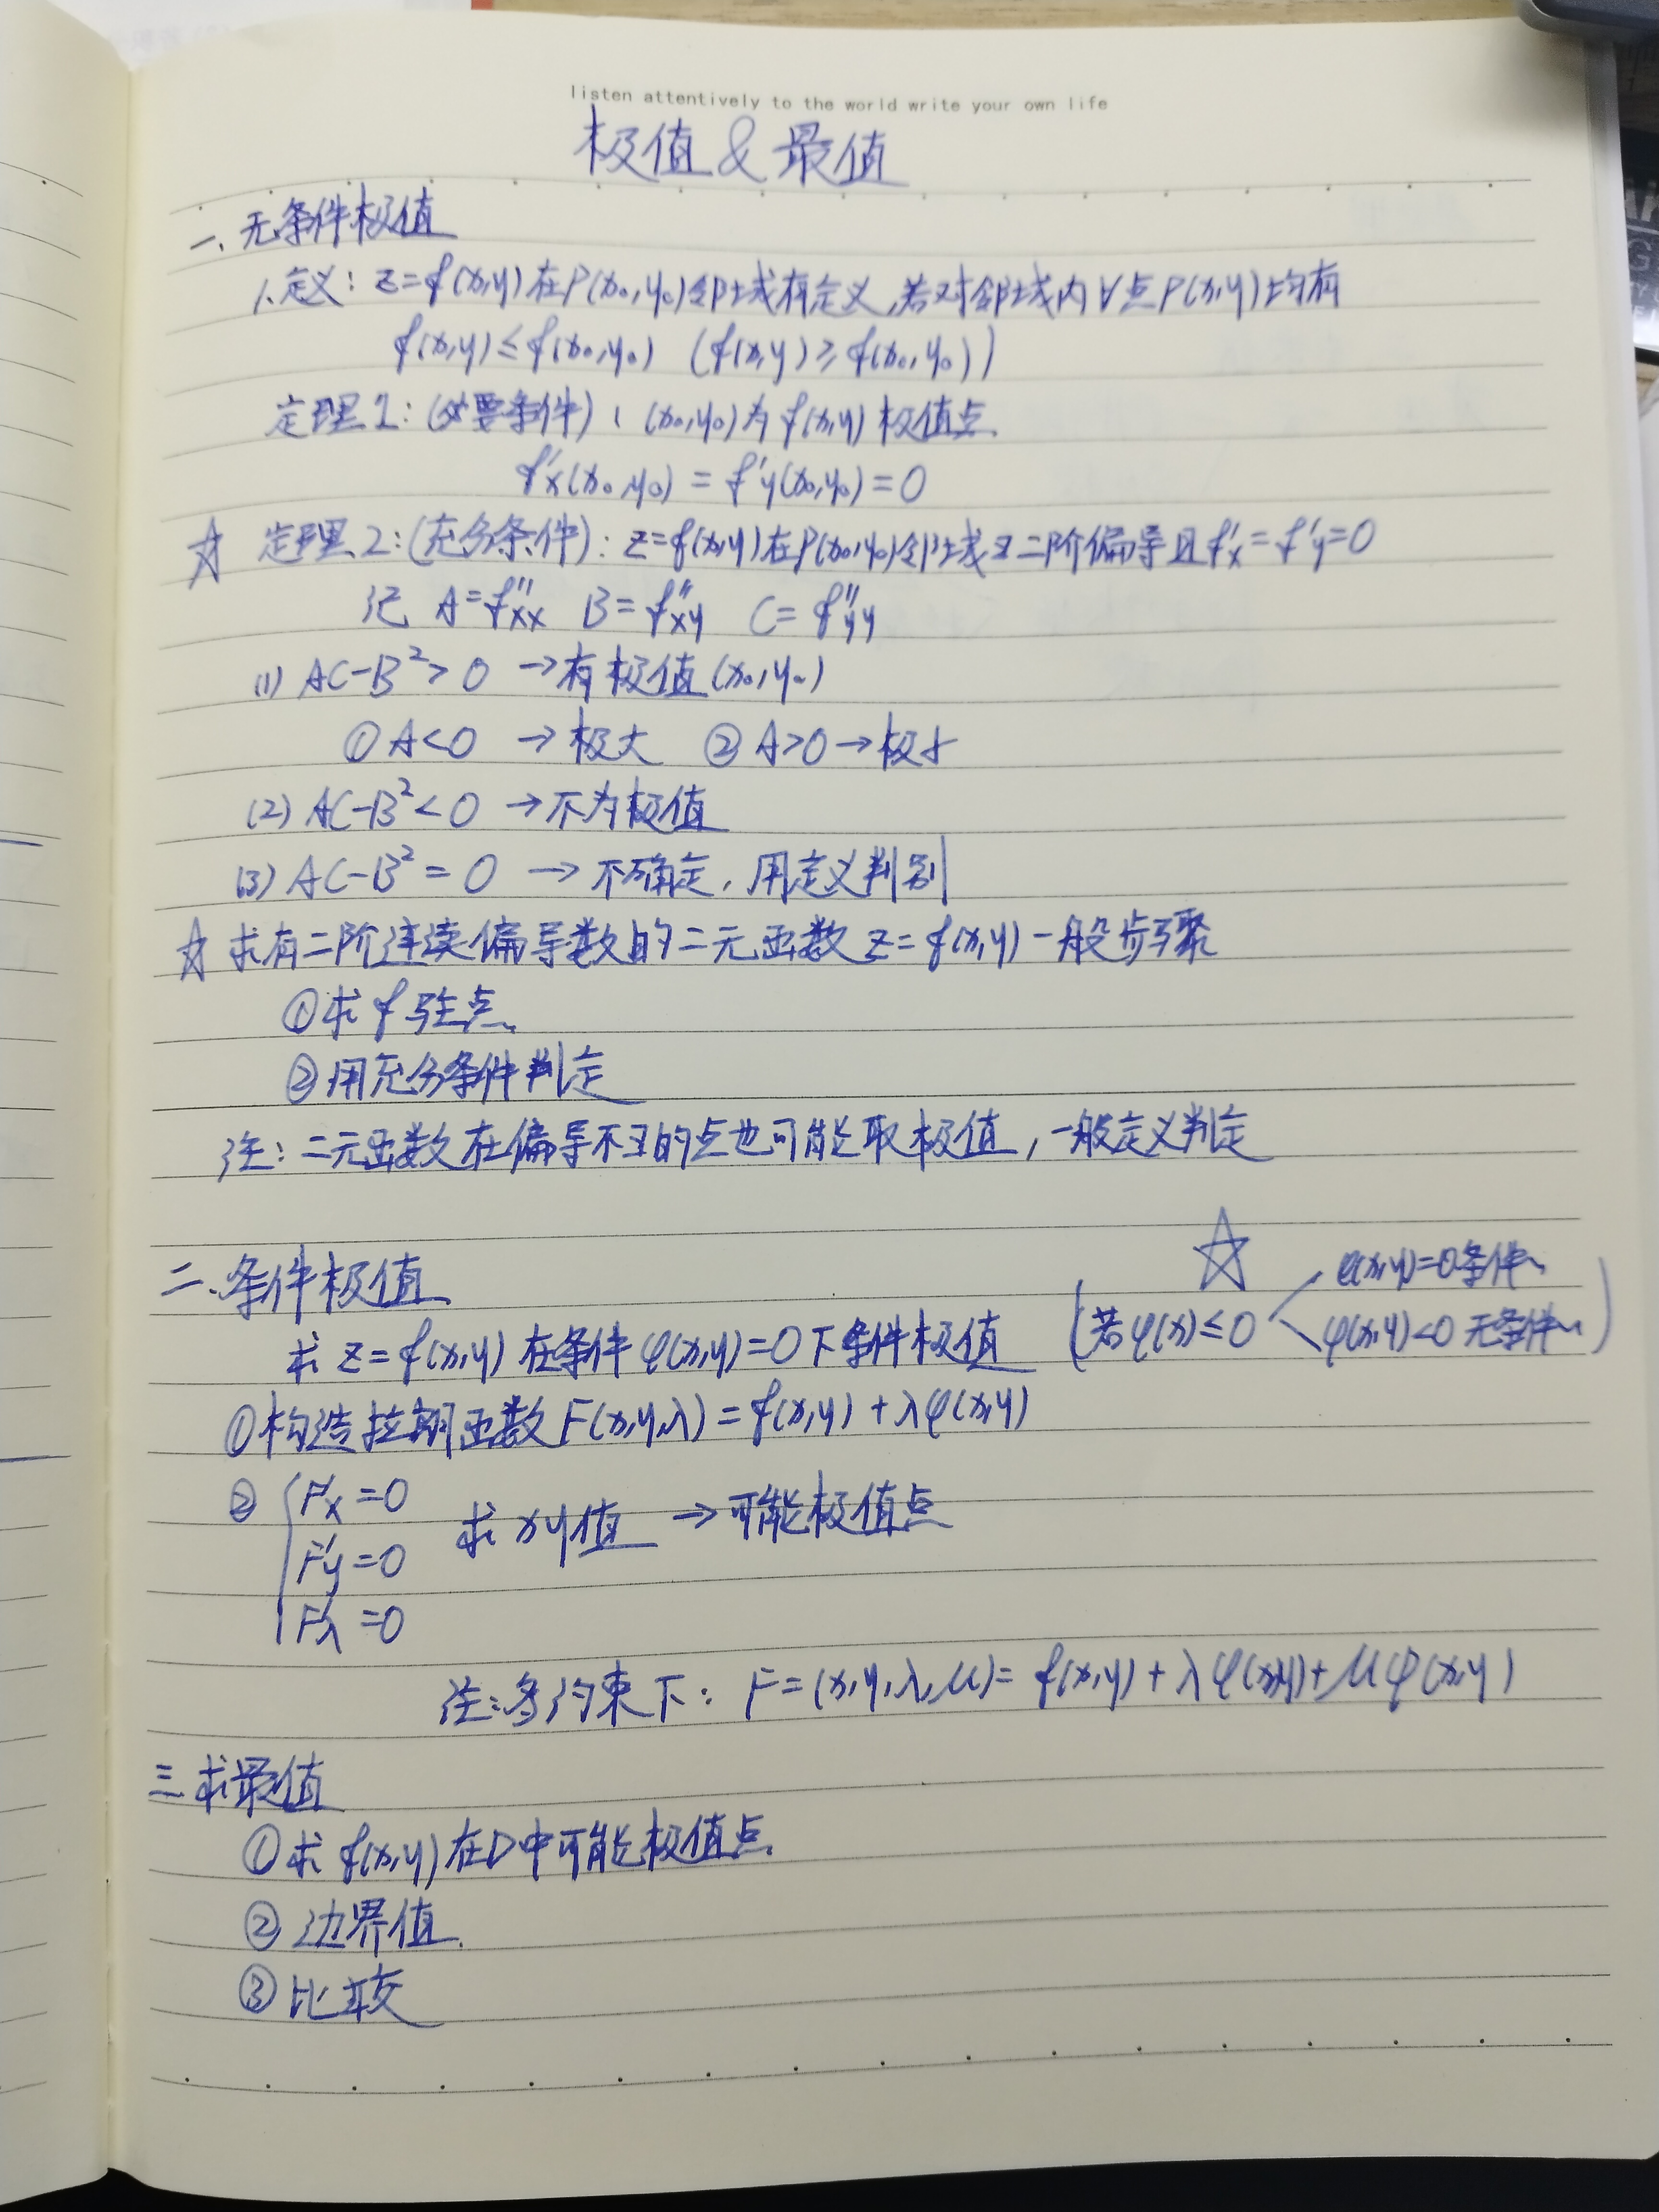 listen attentively to the world write your own life
极值 & 最值
一、无条件极值
1、定义：z=f(x,y)在P(x₀,y₀)邻域有定义,若对邻域内∀点P(x,y)均有
f(x,y)≤f(x₀,y₀) (f(x,y)≥f(x₀,y₀))
定理1：(必要条件)：(x₀,y₀)为f(x,y)极值点.
f'x(x₀,y₀) = f'y(x₀,y₀)=0
☆ 定理2:(充分条件)：z=f(x,y)在P(x₀,y₀)邻域∃二阶偏导且f'x=f'y=0
记 A=f''xx B=f''xy C=f''yy
(1) AC-B²>0 →有极值(x₀,y₀)
①A<0 →极大 ②A>0→极小
(2) AC-B²<0 →不为极值
(3) AC-B²=0 →不确定，用定义判别
☆ 求有二阶连续偏导数的二元函数z=f(x,y)一般步骤
①求f驻点
②用充分条件判定
注：二元函数在偏导不∃的点也可能取极值，一般定义判定
二、条件极值
☆
φ(x,y)=0条件~
求z=f(x,y)在条件φ(x,y)=0下条件极值 (若φ(x)≤0 φ(x,y)<0 无条件~)
①构造拉朗函数F(x,y,λ)=f(x,y)+λφ(x,y)
② {F'x=0
求xy值 →可能极值点
F'y=0
F'λ=0
注：多约束下：F=(x,y,λ,μ)=f(x,y)+λφ(x,y)+μφ(x,y)
三 求最值
①求f(x,y)在D中可能极值点.
②边界值.
③比较